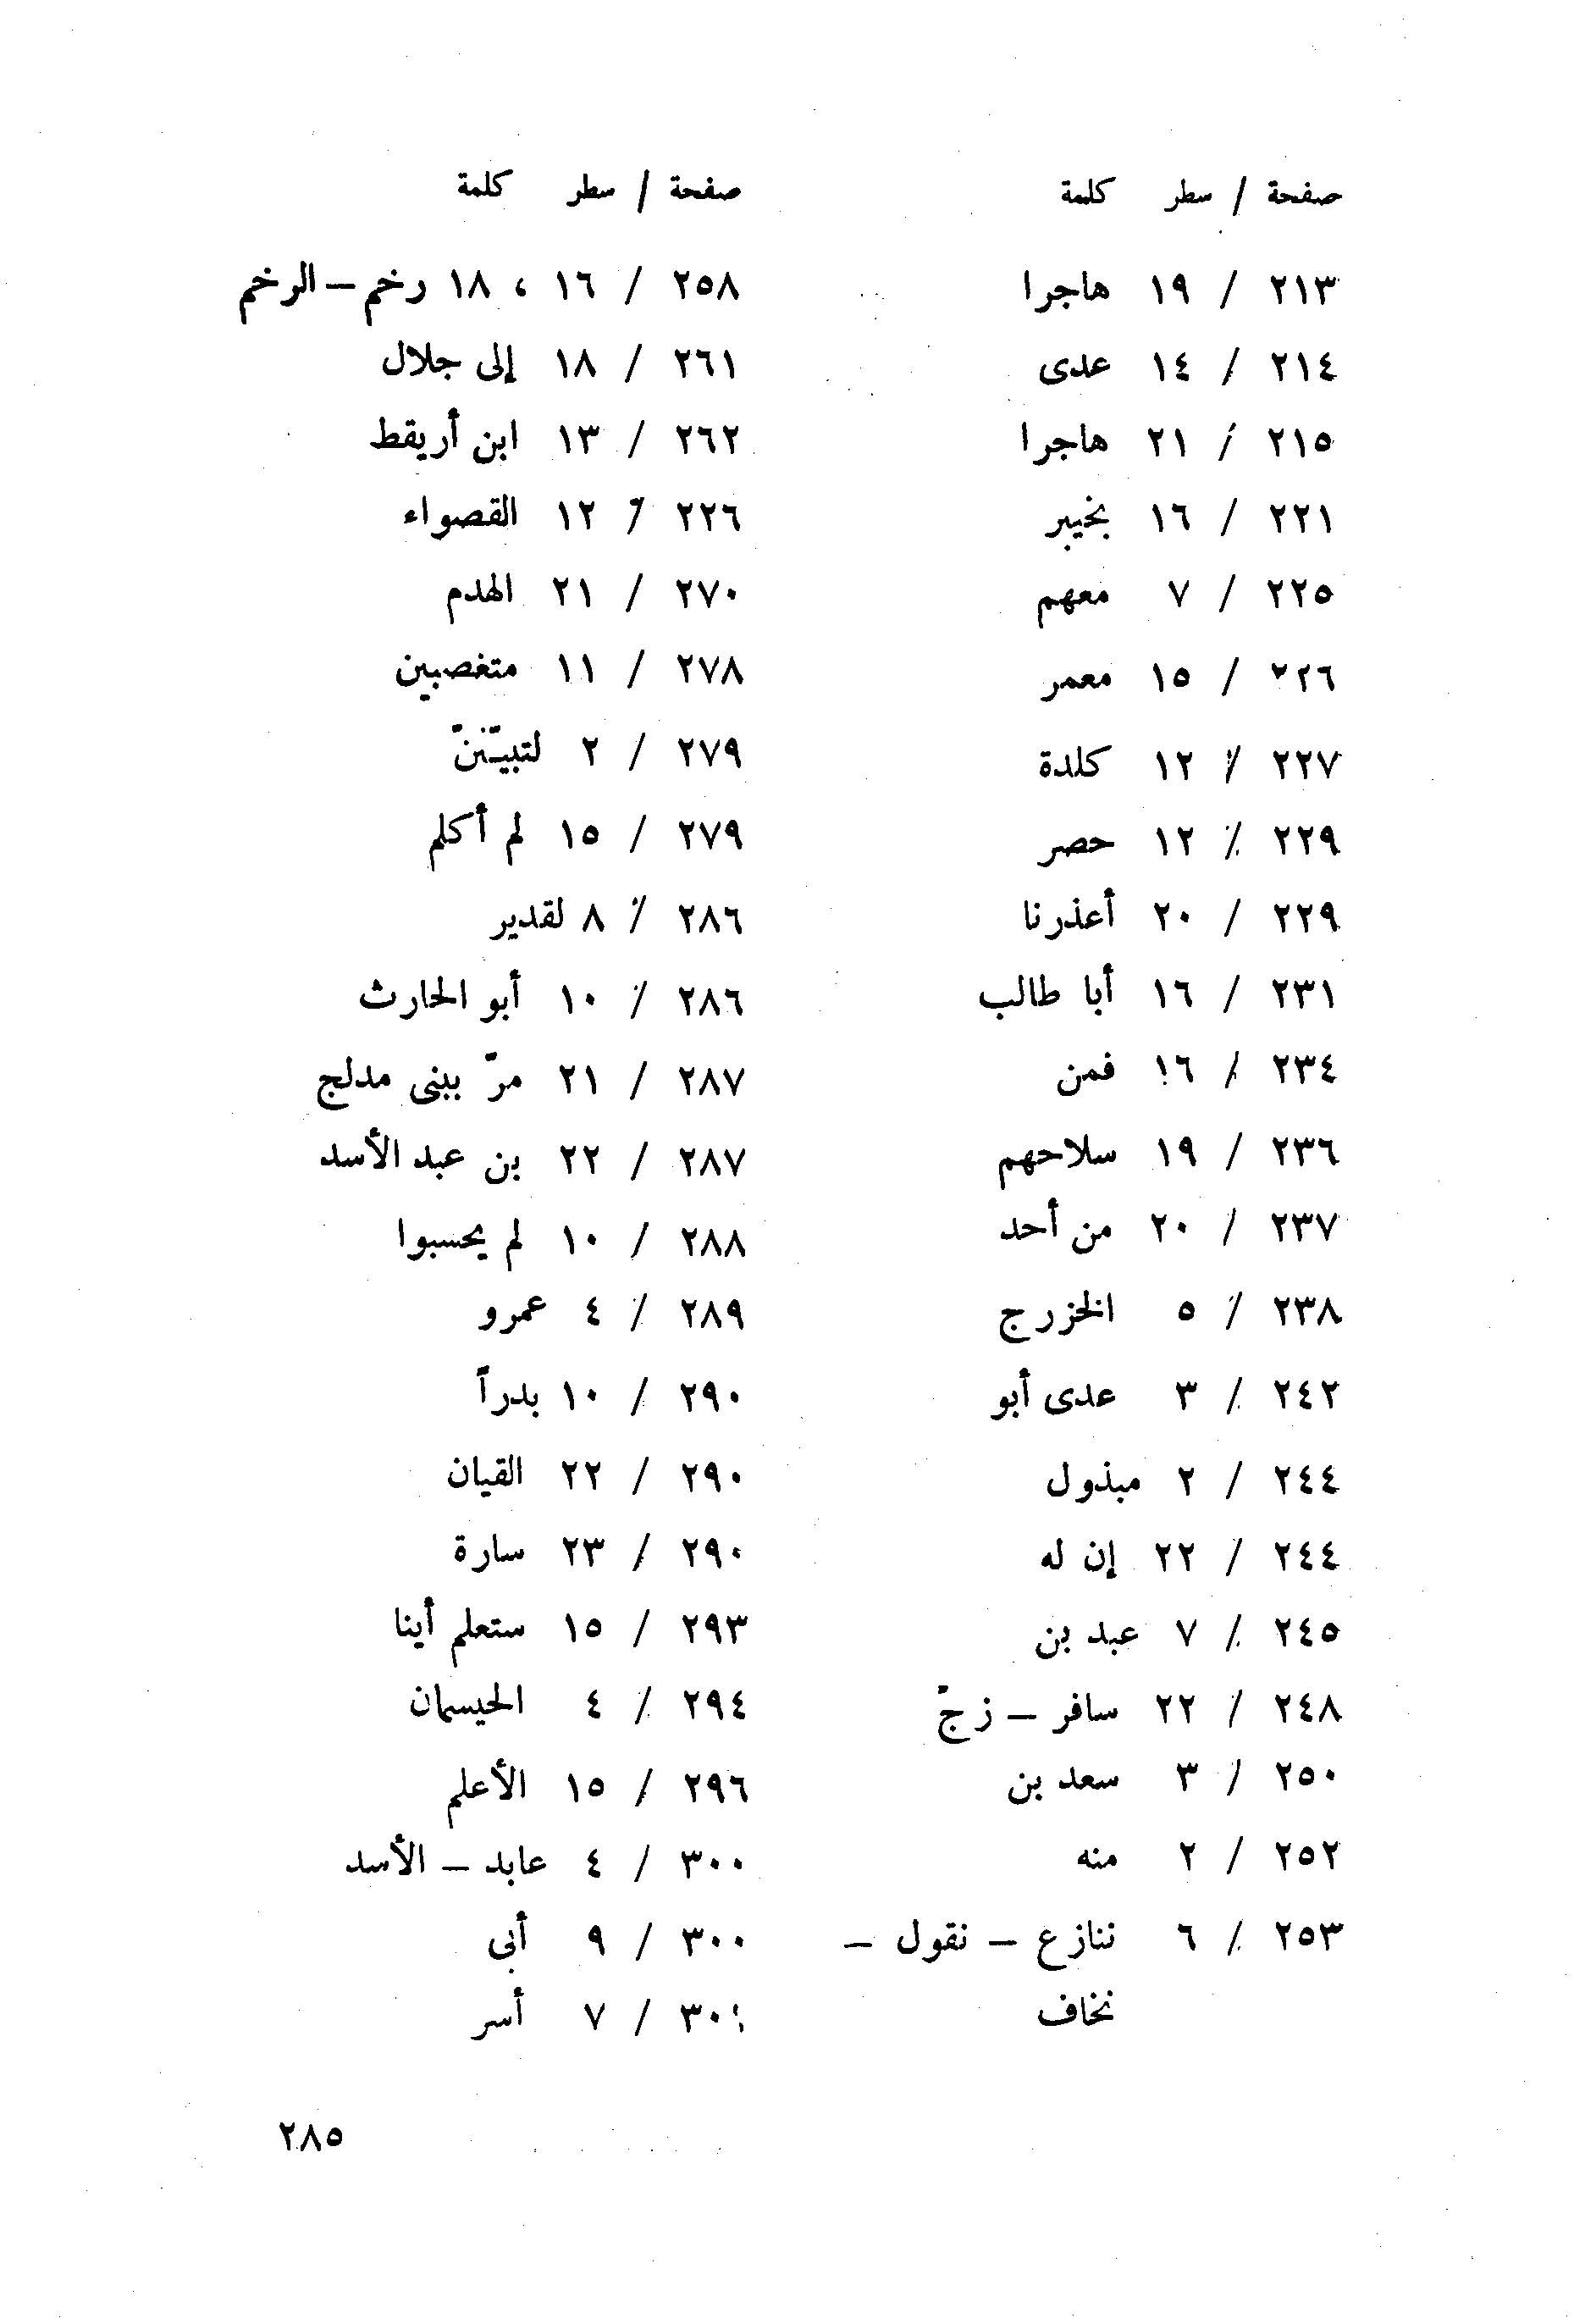 صفحة / سطر كلمة
٢١٣ / ١٩ هاجرا
٢١٤ / ١٤ عدى
٢١٥ / ٢١ هاجرا
٢٢١ / ١٦ بخيبر
٢٢٥ / ٧ معهم
٢٢٦ / ١٥ معمر
٢٢٧ / ١٢ كلدة
٢٢٩ / ١٢ حصر
٢٢٩ / ٢٠ أعذرنا
٢٣١ / ١٦ أبا طالب
٢٣٤ / ١٦ فمن
٢٣٦ / ١٩ سلاحهم
٢٣٧ / ٢٠ من أحد
٢٣٨ / ٥ الخزرج
٢٤٢ / ٣ عدى أبو
٢٤٤ / ٢ مبذول
٢٤٤ / ٢٢ إن له
٢٤٥ / ٧ عبد بن
٢٤٨ / ٢٢ سافر – زجّ
٢٥٠ / ٣ سعد بن
٢٥٢ / ٢ منه
٢٥٣ / ٦ ننازع – نقول –
نخاف
صفحة / سطر كلمة
٢٥٨ / ١٦ ، ١٨ رخم – الرخم
٢٦١ / ١٨ إلى جلال
٢٦٢ / ١٣ ابن أريقط
٢٢٦ / ١٢ القصواء
٢٧٠ / ٢١ الهدم
٢٧٨ / ١١ متغصبين
٢٧٩ / ٢ لتبيّننّ
٢٧٩ / ١٥ لم أكلم
٢٨٦ / ٨ لقدير
٢٨٦ / ١٠ أبو الحارث
٢٨٧ / ٢١ مرّ ببنى مدلج
٢٨٧ / ٢٢ بن عبد الأسد
٢٨٨ / ١٠ لم يحسبوا
٢٨٩ / ٤ عمرو
٢٩٠ / ١٠ بدراً
٢٩٠ / ٢٢ القيان
٢٩٠ / ٢٣ سارة
٢٩٣ / ١٥ ستعلم أينا
٢٩٤ / ٤ الحيسمان
٢٩٦ / ١٥ الأعلم
٣٠٠ / ٤ عابد – الأسد
٣٠٠ / ٩ أبى
٣٠١ / ٧ أسر
٢٨٥